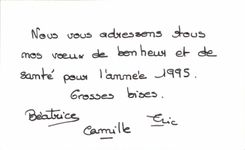 Nous vous adressons tous
nos vœux de bonheur et de
santé pour l'année 1995.
Grosses bises.
Béatrice Eric
Camille